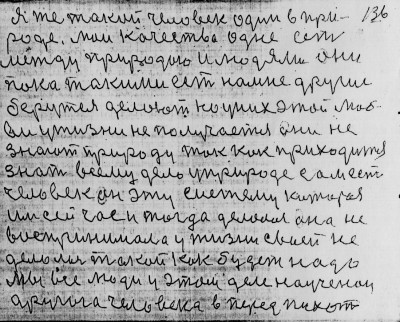 Я же такой человек один в при- 136
роде. мои качества одне сеть
между природою и людями они
пока такими ест на мне другие
берутся делают но у них этой люб-
ви у жизни не получается они не
знают природу так как приходится
знат всему дело у природе сам ест
человек он эту систему которая
им сейчас и тогда делалас она не
воспринимала у жизни своей не
делолис такой как будет надо
мы все люди у этом деле научено
другога человека в перед